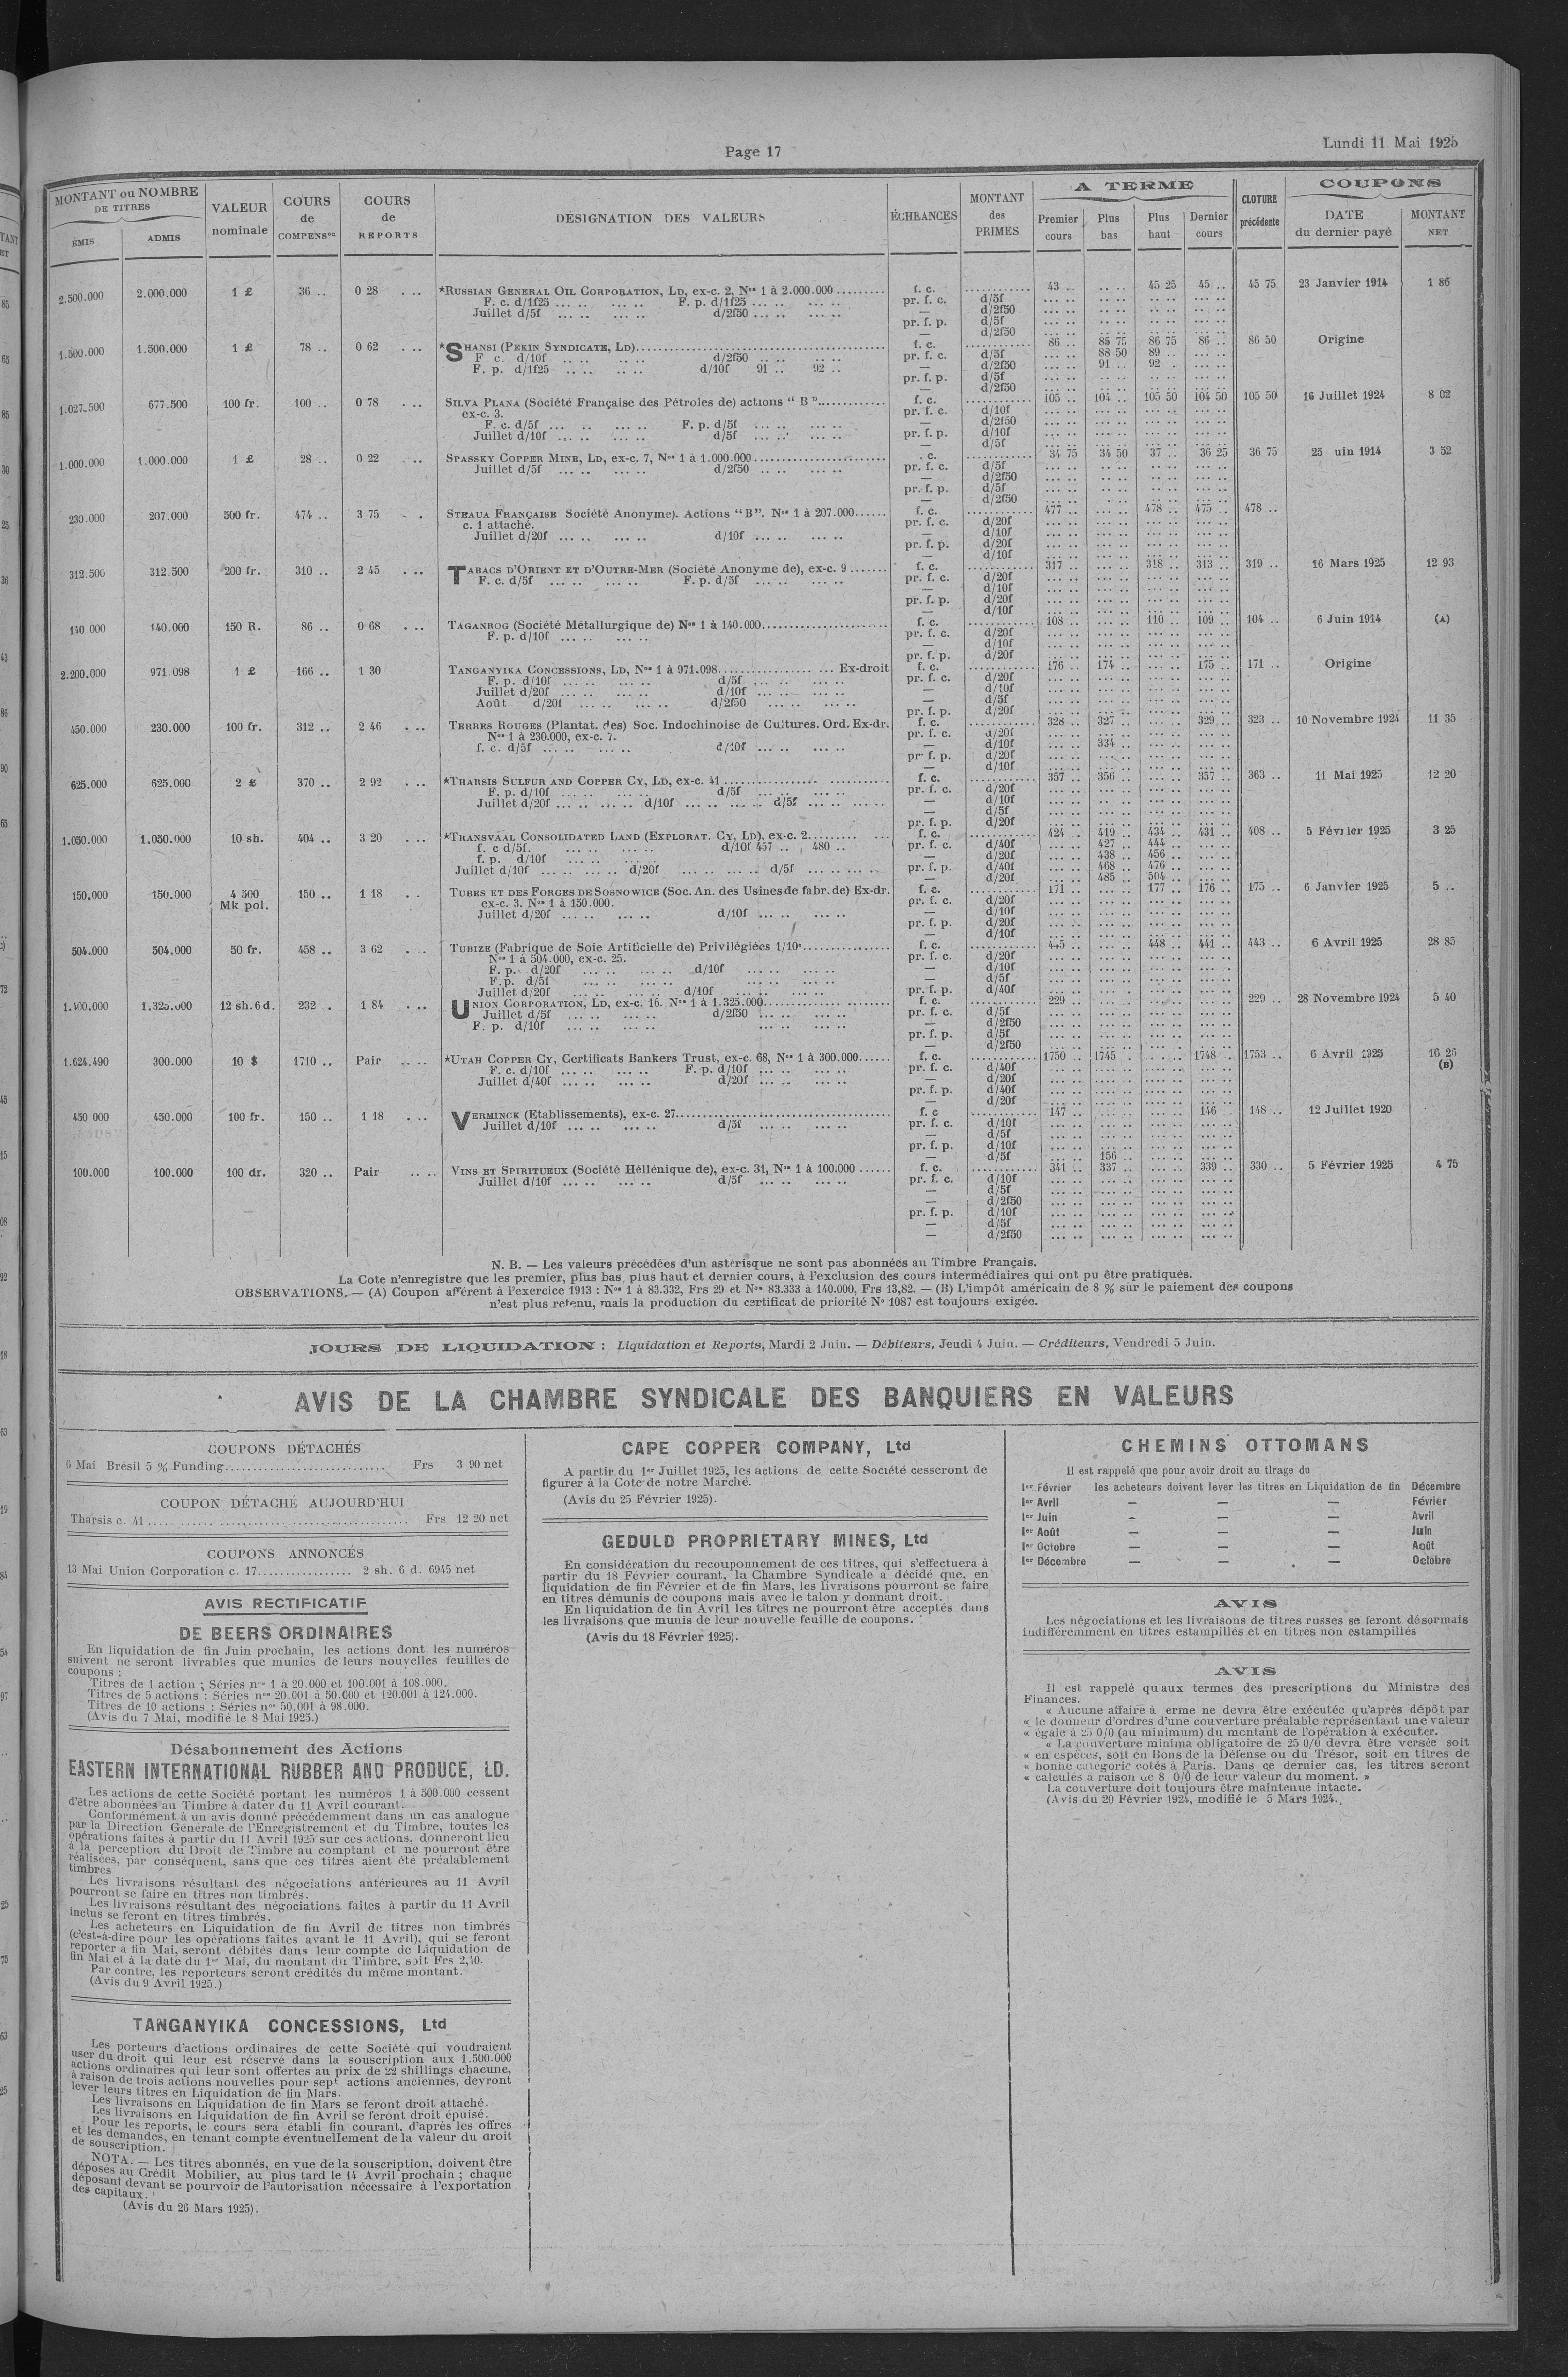 Page 17
Lundi 11 Mai 1925
MONTANT ou NOMBRE DE TITRES
ÉMIS ADMIS
VALEUR nominale
COURS de COMPENSon
COURS de REPORTS
DÉSIGNATION DES VALEURS
ÉCHEANCES
MONTANT des PRIMES
A TERME
Premier cours Plus bas Plus haut Dernier cours
CLOTURE précédente
COUPONS
DATE du dernier payé MONTANT NET
2.500.000 2.000.000 1 £ 36 .. 0 28 *RUSSIAN GENERAL OIL CORPORATION, LD, ex-c. 2, Nos 1 à 2.000.000 f. c. 43 .. 45 25 45 .. 45 75 23 Janvier 1914 1 86
F. c. d/1f25 F. p. d/1f25 pr. f. c. d/5f
Juillet d/5f d/2f50 — d/2f50
pr. f. p. d/5f
— d/2f50
1.500.000 1.500.000 1 £ 78 .. 0 62 *SHANSI (PEKIN SYNDICATE, LD) f. c. 86 .. 85 75 86 75 86 .. 86 50 Origine
F. c. d/10f d/2f50 pr. f. c. d/5f 88 50 89 ..
F. p. d/1f25 d/10f 91 .. 92 .. — d/2f50 91 .. 92 .
pr. f. p. d/5f
— d/2f50
1.027.500 677.500 100 fr. 100 .. 0 78 SILVA PLANA (Société Française des Pétroles de) actions " B " f. c. 105 .. 104 .. 105 50 104 50 105 50 16 Juillet 1924 8 02
ex-c. 3. pr. f. c. d/10f
F. c. d/5f F. p. d/5f — d/2f50
Juillet d/10f d/5f pr. f. p. d/10f
— d/5f
1.000.000 1.000.000 1 £ 28 .. 0 22 SPASSKY COPPER MINE, LD, ex-c. 7, Nos 1 à 1.000.000 . c. 34 75 34 50 37 .. 36 25 36 75 25 uin 1914 3 52
Juillet d/5f d/2f50 pr. f. c. d/5f
— d/2f50
pr. f. p. d/5f
— d/2f50
230.000 207.000 500 fr. 474 .. 3 75 STEAUA FRANÇAISE Société Anonyme). Actions "B". Nos 1 à 207.000 f. c. 477 .. 478 .. 475 .. 478 ..
c. 1 attaché. pr. f. c. d/20f
Juillet d/20f d/10f — d/10f
pr. f. p. d/20f
— d/10f
312.500 312.500 200 fr. 310 .. 2 45 TABACS D'ORIENT ET D'OUTRE-MER (Société Anonyme de), ex-c. 9 f. c. 317 .. 318 .. 313 .. 319 .. 16 Mars 1925 12 93
F. c. d/5f F. p. d/5f pr. f. c. d/20f
— d/10f
pr. f. p. d/20f
— d/10f
140 000 140.000 150 R. 86 .. 0 68 TAGANROG (Société Métallurgique de) Nos 1 à 140.000 f. c. 108 .. 110 .. 109 .. 104 .. 6 Juin 1914 (A)
F. p. d/10f pr. f. c. d/20f
— d/10f
pr. f. p. d/20f
2.200.000 971.098 1 £ 166 .. 1 30 TANGANYIKA CONCESSIONS, LD, Nos 1 à 971.098 Ex-droit f. c. 176 .. 174 .. 175 .. 171 .. Origine
F. p. d/10f d/5f pr. f. c. d/20f
Juillet d/20f d/10f — d/10f
Août d/20f d/2f50 — d/5f
pr. f. p. d/20f
450.000 230.000 100 fr. 312 .. 2 46 TERRES ROUGES (Plantat. des) Soc. Indochinoise de Cultures. Ord. Ex-dr. f. c. 328 .. 327 .. 329 .. 323 .. 10 Novembre 1924 11 35
Nos 1 à 230.000, ex-c. 7. pr. f. c. d/20f
f. c. d/5f d/10f — d/10f 334 ..
pr. f. p. d/20f
— d/10f
625.000 625.000 2 £ 370 .. 2 92 *THARSIS SULFUR AND COPPER CY, LD, ex-c. 41 f. c. 357 .. 356 .. 357 .. 363 .. 11 Mai 1925 12 20
F. p. d/10f d/5f pr. f. c. d/20f
Juillet d/20f d/10f d/5f — d/10f
— d/5f
pr. f. p. d/20f
1.050.000 1.050.000 10 sh. 404 .. 3 20 *TRANSVAAL CONSOLIDATED LAND (EXPLORAT. CY, LD), ex-c. 2 f. c. 424 .. 419 .. 434 .. 431 .. 408 .. 5 Février 1925 3 25
f. c d/5f. d/10f 457 .. 480 .. pr. f. c. d/40f 427 .. 444 ..
f. p. d/10f — d/20f 438 .. 456 ..
Juillet d/10f d/20f d/5f pr. f. p. d/40f 468 .. 476 ..
— d/20f 485 .. 504 ..
150.000 150.000 4 500 Mk pol. 150 .. 1 18 TUBES ET DES FORGES DE SOSNOWICE (Soc. An. des Usines de fabr. de) Ex-dr. f. c. 171 .. 177 .. 176 .. 175 .. 6 Janvier 1925 5 ..
ex-c. 3. Nos 1 à 150.000. pr. f. c. d/20f
Juillet d/20f d/10f — d/10f
pr. f. p. d/20f
— d/10f
504.000 504.000 50 fr. 458 .. 3 62 TUBIZE (Fabrique de Soie Artificielle de) Privilégiées 1/10e f. c. 445 .. 448 .. 441 .. 443 .. 6 Avril 1925 28 85
Nos 1 à 504.000, ex-c. 25. pr. f. c. d/20f
F. p. d/20f d/10f — d/10f
F. p. d/5f — d/5f
Juillet d/20f d/10f pr. f. p. d/40f
1.400.000 1.325.000 12 sh. 6 d. 232 . 1 84 UNION CORPORATION, LD, ex-c. 16. Nos 1 à 1.325.000 f. c. 229 .. 229 .. 28 Novembre 1924 5 40
Juillet d/5f d/2f50 pr. f. c. d/5f
F. p. d/10f — d/2f50
pr. f. p. d/5f
— d/2f50
1.624.490 300.000 10 $ 1710 .. Pair *UTAH COPPER CY, Certificats Bankers Trust, ex-c. 68, Nos 1 à 300.000 f. c. 1750 .. 1745 . 1748 .. 1753 .. 6 Avril 1925 16 25 (B)
F. c. d/10f F. p. d/10f pr. f. c. d/40f
Juillet d/40f d/20f — d/20f
pr. f. p. d/40f
— d/20f
450 000 450.000 100 fr. 150 .. 1 18 VERMINCK (Etablissements), ex-c. 27 f. c 147 .. 146 .. 148 .. 12 Juillet 1920
Juillet d/10f d/5f pr. f. c. d/10f
— d/5f
pr. f. p. d/10f
— d/5f 156 ..
100.000 100.000 100 dr. 320 .. Pair VINS ET SPIRITUEUX (Société Héllénique de), ex-c. 31, Nos 1 à 100.000 f. c. 341 .. 337 .. 339 .. 330 .. 5 Février 1925 4 75
Juillet d/10f d/5f pr. f. c. d/10f
— d/5f
— d/2f50
pr. f. p. d/10f
— d/5f
— d/2f50
N. B. — Les valeurs précédées d'un astérisque ne sont pas abonnées au Timbre Français.
La Cote n'enregistre que les premier, plus bas, plus haut et dernier cours, à l'exclusion des cours intermédiaires qui ont pu être pratiqués.
OBSERVATIONS. — (A) Coupon afférent à l'exercice 1913 : Nos 1 à 83.332, Frs 29 et Nos 83.333 à 140.000, Frs 13,82. — (B) L'impôt américain de 8 % sur le paiement des coupons
n'est plus retenu, mais la production du certificat de priorité No 1087 est toujours exigée.
JOURS DE LIQUIDATION : Liquidation et Reports, Mardi 2 Juin. — Débiteurs, Jeudi 4 Juin. — Créditeurs, Vendredi 5 Juin.
AVIS DE LA CHAMBRE SYNDICALE DES BANQUIERS EN VALEURS
COUPONS DÉTACHÉS
6 Mai Brésil 5 % Funding Frs 3 90 net
COUPON DÉTACHÉ AUJOURD'HUI
Tharsis c. 41 Frs 12 20 net
COUPONS ANNONCÉS
13 Mai Union Corporation c. 17 2 sh. 6 d. 6945 net
AVIS RECTIFICATIF
DE BEERS ORDINAIRES
En liquidation de fin Juin prochain, les actions dont les numéros
suivent ne seront livrables que munies de leurs nouvelles feuilles de
coupons :
Titres de 1 action ; Séries nos 1 à 20.000 et 100.001 à 108.000.
Titres de 5 actions : Séries nos 20.001 à 50.000 et 120.001 à 124.000.
Titres de 10 actions : Séries nos 50.001 à 98.000.
(Avis du 7 Mai, modifié le 8 Mai 1925.)
Désabonnement des Actions
EASTERN INTERNATIONAL RUBBER AND PRODUCE, LD.
Les actions de cette Société portant les numéros 1 à 500.000 cessent
d'être abonnées au Timbre à dater du 11 Avril courant.
Conformément à un avis donné précédemment dans un cas analogue
par la Direction Générale de l'Enregistrement et du Timbre, toutes les
opérations faites à partir du 11 Avril 1925 sur ces actions, donneront lieu
à la perception du Droit de Timbre au comptant et ne pourront être
réalisées, par conséquent, sans que ces titres aient été préalablement
timbrés
Les livraisons résultant des négociations antérieures au 11 Avril
pourront se faire en titres non timbrés.
Les livraisons résultant des négociations faites à partir du 11 Avril
inclus se feront en titres timbrés.
Les acheteurs en Liquidation de fin Avril de titres non timbrés
(c'est-à-dire pour les opérations faites avant le 11 Avril), qui se feront
reporter à fin Mai, seront débités dans leur compte de Liquidation de
fin Mai et à la date du 1er Mai, du montant du Timbre, soit Frs 2,40.
Par contre, les reporteurs seront crédités du même montant.
(Avis du 9 Avril 1925.)
TANGANYIKA CONCESSIONS, Ltd
Les porteurs d'actions ordinaires de cette Société qui voudraient
user du droit qui leur est réservé dans la souscription aux 1.500.000
actions ordinaires qui leur sont offertes au prix de 22 shillings chacune,
à raison de trois actions nouvelles pour sept actions anciennes, devront
lever leurs titres en Liquidation de fin Mars.
Les livraisons en Liquidation de fin Mars se feront droit attaché.
Les livraisons en Liquidation de fin Avril se feront droit épuisé.
Pour les reports, le cours sera établi fin courant, d'après les offres
et les demandes, en tenant compte éventuellement de la valeur du droit
de souscription.
NOTA. — Les titres abonnés, en vue de la souscription, doivent être
déposés au Crédit Mobilier, au plus tard le 14 Avril prochain ; chaque
déposant devant se pourvoir de l'autorisation nécessaire à l'exportation
des capitaux.
(Avis du 26 Mars 1925).
CAPE COPPER COMPANY, Ltd
A partir du 1er Juillet 1925, les actions de cette Société cesseront de
figurer à la Cote de notre Marché.
(Avis du 25 Février 1925).
GEDULD PROPRIETARY MINES, Ltd
En considération du recouponnement de ces titres, qui s'effectuera à
partir du 18 Février courant, la Chambre Syndicale a décidé que, en
liquidation de fin Février et de fin Mars, les livraisons pourront se faire
en titres démunis de coupons mais avec le talon y donnant droit.
En liquidation de fin Avril les titres ne pourront être acceptés dans
les livraisons que munis de leur nouvelle feuille de coupons.
(Avis du 18 Février 1925).
CHEMINS OTTOMANS
Il est rappelé que pour avoir droit au tirage du
1er Février les acheteurs doivent lever les titres en Liquidation de fin Décembre
1er Avril — — — Février
1er Juin — — — Avril
1er Août — — — Juin
1er Octobre — — — Août
1er Décembre — — — Octobre
AVIS
Les négociations et les livraisons de titres russes se feront désormais
indifféremment en titres estampillés et en titres non estampillés
AVIS
Il est rappelé qu aux termes des prescriptions du Ministre des
Finances.
« Aucune affaire à erme ne devra être exécutée qu'après dépôt par
« le donneur d'ordres d'une couverture préalable représentant une valeur
« égale à 25 0/0 (au minimum) du montant de l'opération à exécuter.
« La couverture minima obligatoire de 25 0/0 devra être versée soit
« en espèces, soit en Bons de la Défense ou du Trésor, soit en titres de
« bonne catégorie cotés à Paris. Dans ce dernier cas, les titres seront
« calculés à raison de 8 0/0 de leur valeur du moment. »
La couverture doit toujours être maintenue intacte.
(Avis du 20 Février 1924, modifié le 5 Mars 1924.